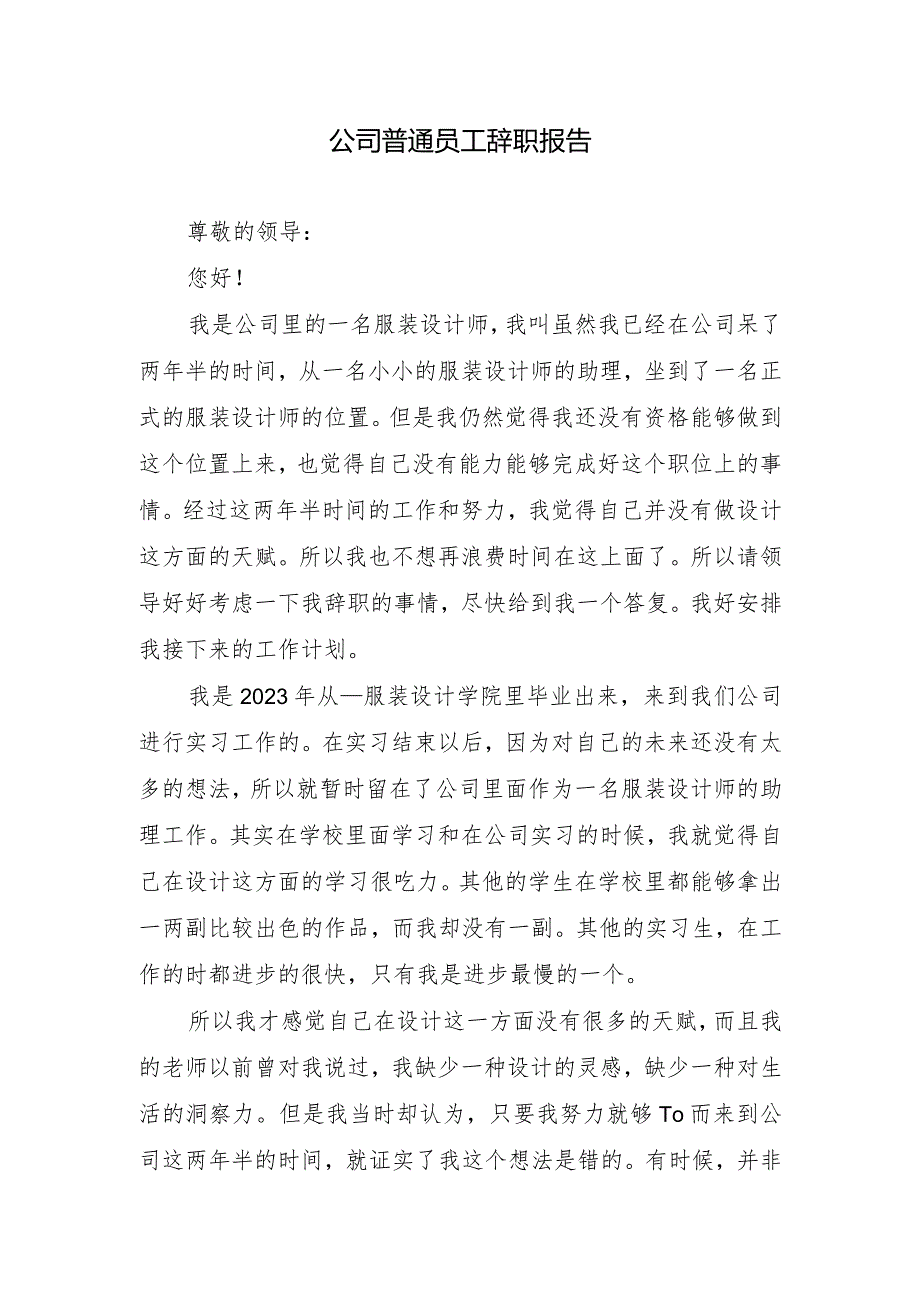 公司普通员工辞职报告
尊敬的领导：
您好！
我是公司里的一名服装设计师，我叫虽然我已经在公司呆了
两年半的时间，从一名小小的服装设计师的助理，坐到了一名正
式的服装设计师的位置。但是我仍然觉得我还没有资格能够做到
这个位置上来，也觉得自己没有能力能够完成好这个职位上的事
情。经过这两年半时间的工作和努力，我觉得自己并没有做设计
这方面的天赋。所以我也不想再浪费时间在这上面了。所以请领
导好好考虑一下我辞职的事情，尽快给到我一个答复。我好安排
我接下来的工作计划。
我是 2023 年从—服装设计学院里毕业出来，来到我们公司
进行实习工作的。在实习结束以后，因为对自己的未来还没有太
多的想法，所以就暂时留在了公司里面作为一名服装设计师的助
理工作。其实在学校里面学习和在公司实习的时候，我就觉得自
己在设计这方面的学习很吃力。其他的学生在学校里都能够拿出
一两副比较出色的作品，而我却没有一副。其他的实习生，在工
作的时都进步的很快，只有我是进步最慢的一个。
所以我才感觉自己在设计这一方面没有很多的天赋，而且我
的老师以前曾对我说过，我缺少一种设计的灵感，缺少一种对生
活的洞察力。但是我当时却认为，只要我努力就够 To 而来到公
司这两年半的时间，就证实了我这个想法是错的。有时候，并非